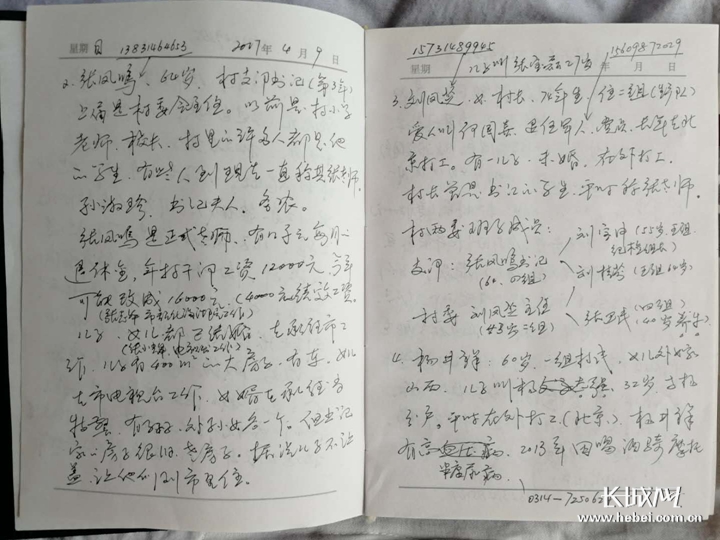 星期 日 13831464653 2017年 4月 9日
2. 张凤鸣、64岁、村支部书记(第3年)
上届是村委会主任。以前是村小学
老师、校长、村里的许多人都是他
的学生、有些人到现在一直称其张老师。
孙淑玲、书记夫人、务农。
张凤鸣是正式老师、有4千元每月的
退休金,年村干部工资12000元、今年
可能改成16000元(4000元绩效工资。
儿子、女儿都已结婚、在承德市工
作,儿子有400m²的大房子、有车。女儿
在市电视台工作、女婿在承德市
特警、有孙子、外孙女各一个。但书记
家的房子很旧、老房子。据说儿子不让
盖、让他们到市里住。
15731489945 15609872029
星期 儿子叫张 27岁 年 月 日
3. 刘凤芝、女、村长、74年生、住二组(生产队)
爱人叫何国 、退伍军人、党员、去年在北
京打工。有一儿子、未婚、在外打工。
村长曾是书记的学生、平时称张老师。
村两委班子成员:
支部:张凤鸣书记
(60、四组)
刘宝 (55岁、五组、
纪检组长)
刘桂 (五组60岁)
村委 刘凤芝主任
(43岁二组)
张卫民(四组)
(40岁养牛)
4. 杨井辉:60岁、一组村民、女儿外嫁
山西、儿子叫杨 32岁、
分户。平时在外打工(北京)、杨井辉
有高血压病、2013年因喝酒骑摩托
糖尿病
0314-725062
长城网
www.hebei.com.cn